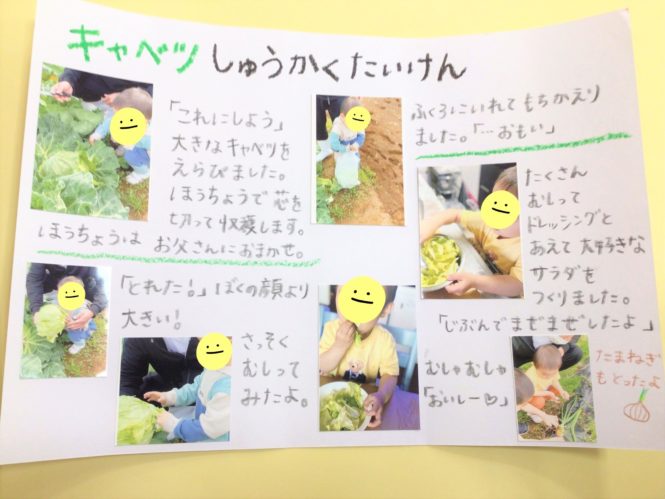 キャベツ しゅうかくたいけん
「これにしよう」
大きなキャベツを
えらびました。
ほうちょうで芯を
切って収穫します。
ほうちょうは お父さんにおまかせ。
ふくろにいれてもちかえり
ました。「…おもい」
「とれた!」ぼくの顔より
大きい!
さっそく
むしって
みたよ。
たくさん
むしって
ドレッシングと
あえて 大好きな
サラダを
つくりました。
「じぶんでまぜまぜしたよ」
むしゃむしゃ
「おいしー♡」
たまねぎ
もとったよ